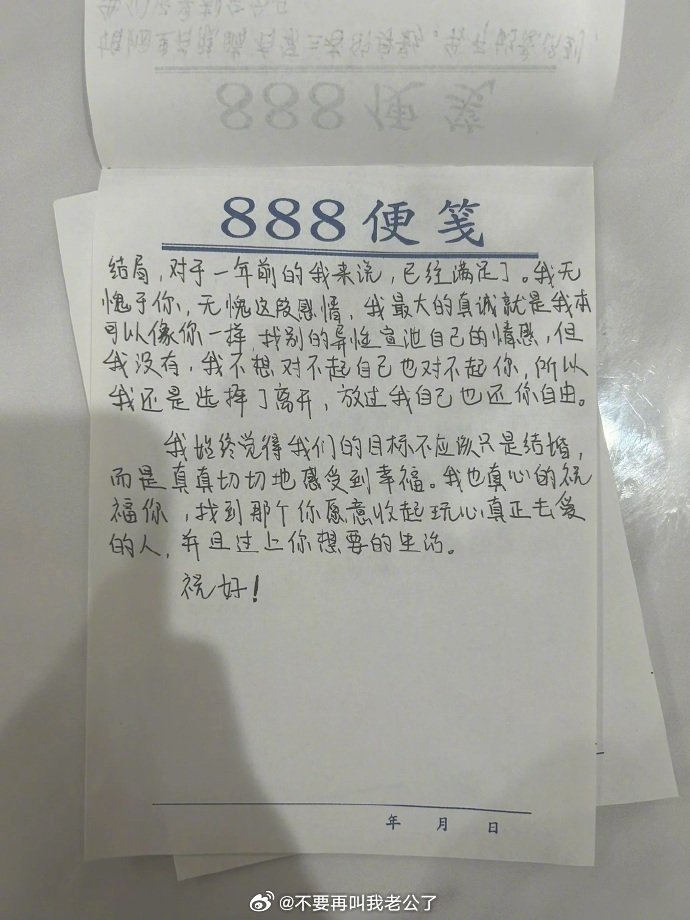 888便笺
结局,对于一年前的我来说,已经满足了。我无
愧于你,无愧这段感情,我最大的真诚就是我本
可以像你一样,找别的异性宣泄自己的情感,但
我没有,我不想对不起自己也对不起你,所以
我还是选择了离开,放过我自己也还你自由。
我始终觉得我们的目标不应该只是结婚,
而是真真切切地感受到幸福。我也真心的祝
福你,找到那个你愿意收起玩心真正去爱
的人,并且过上你想要的生活。
祝好!
年 月 日
@不要再叫我老公了